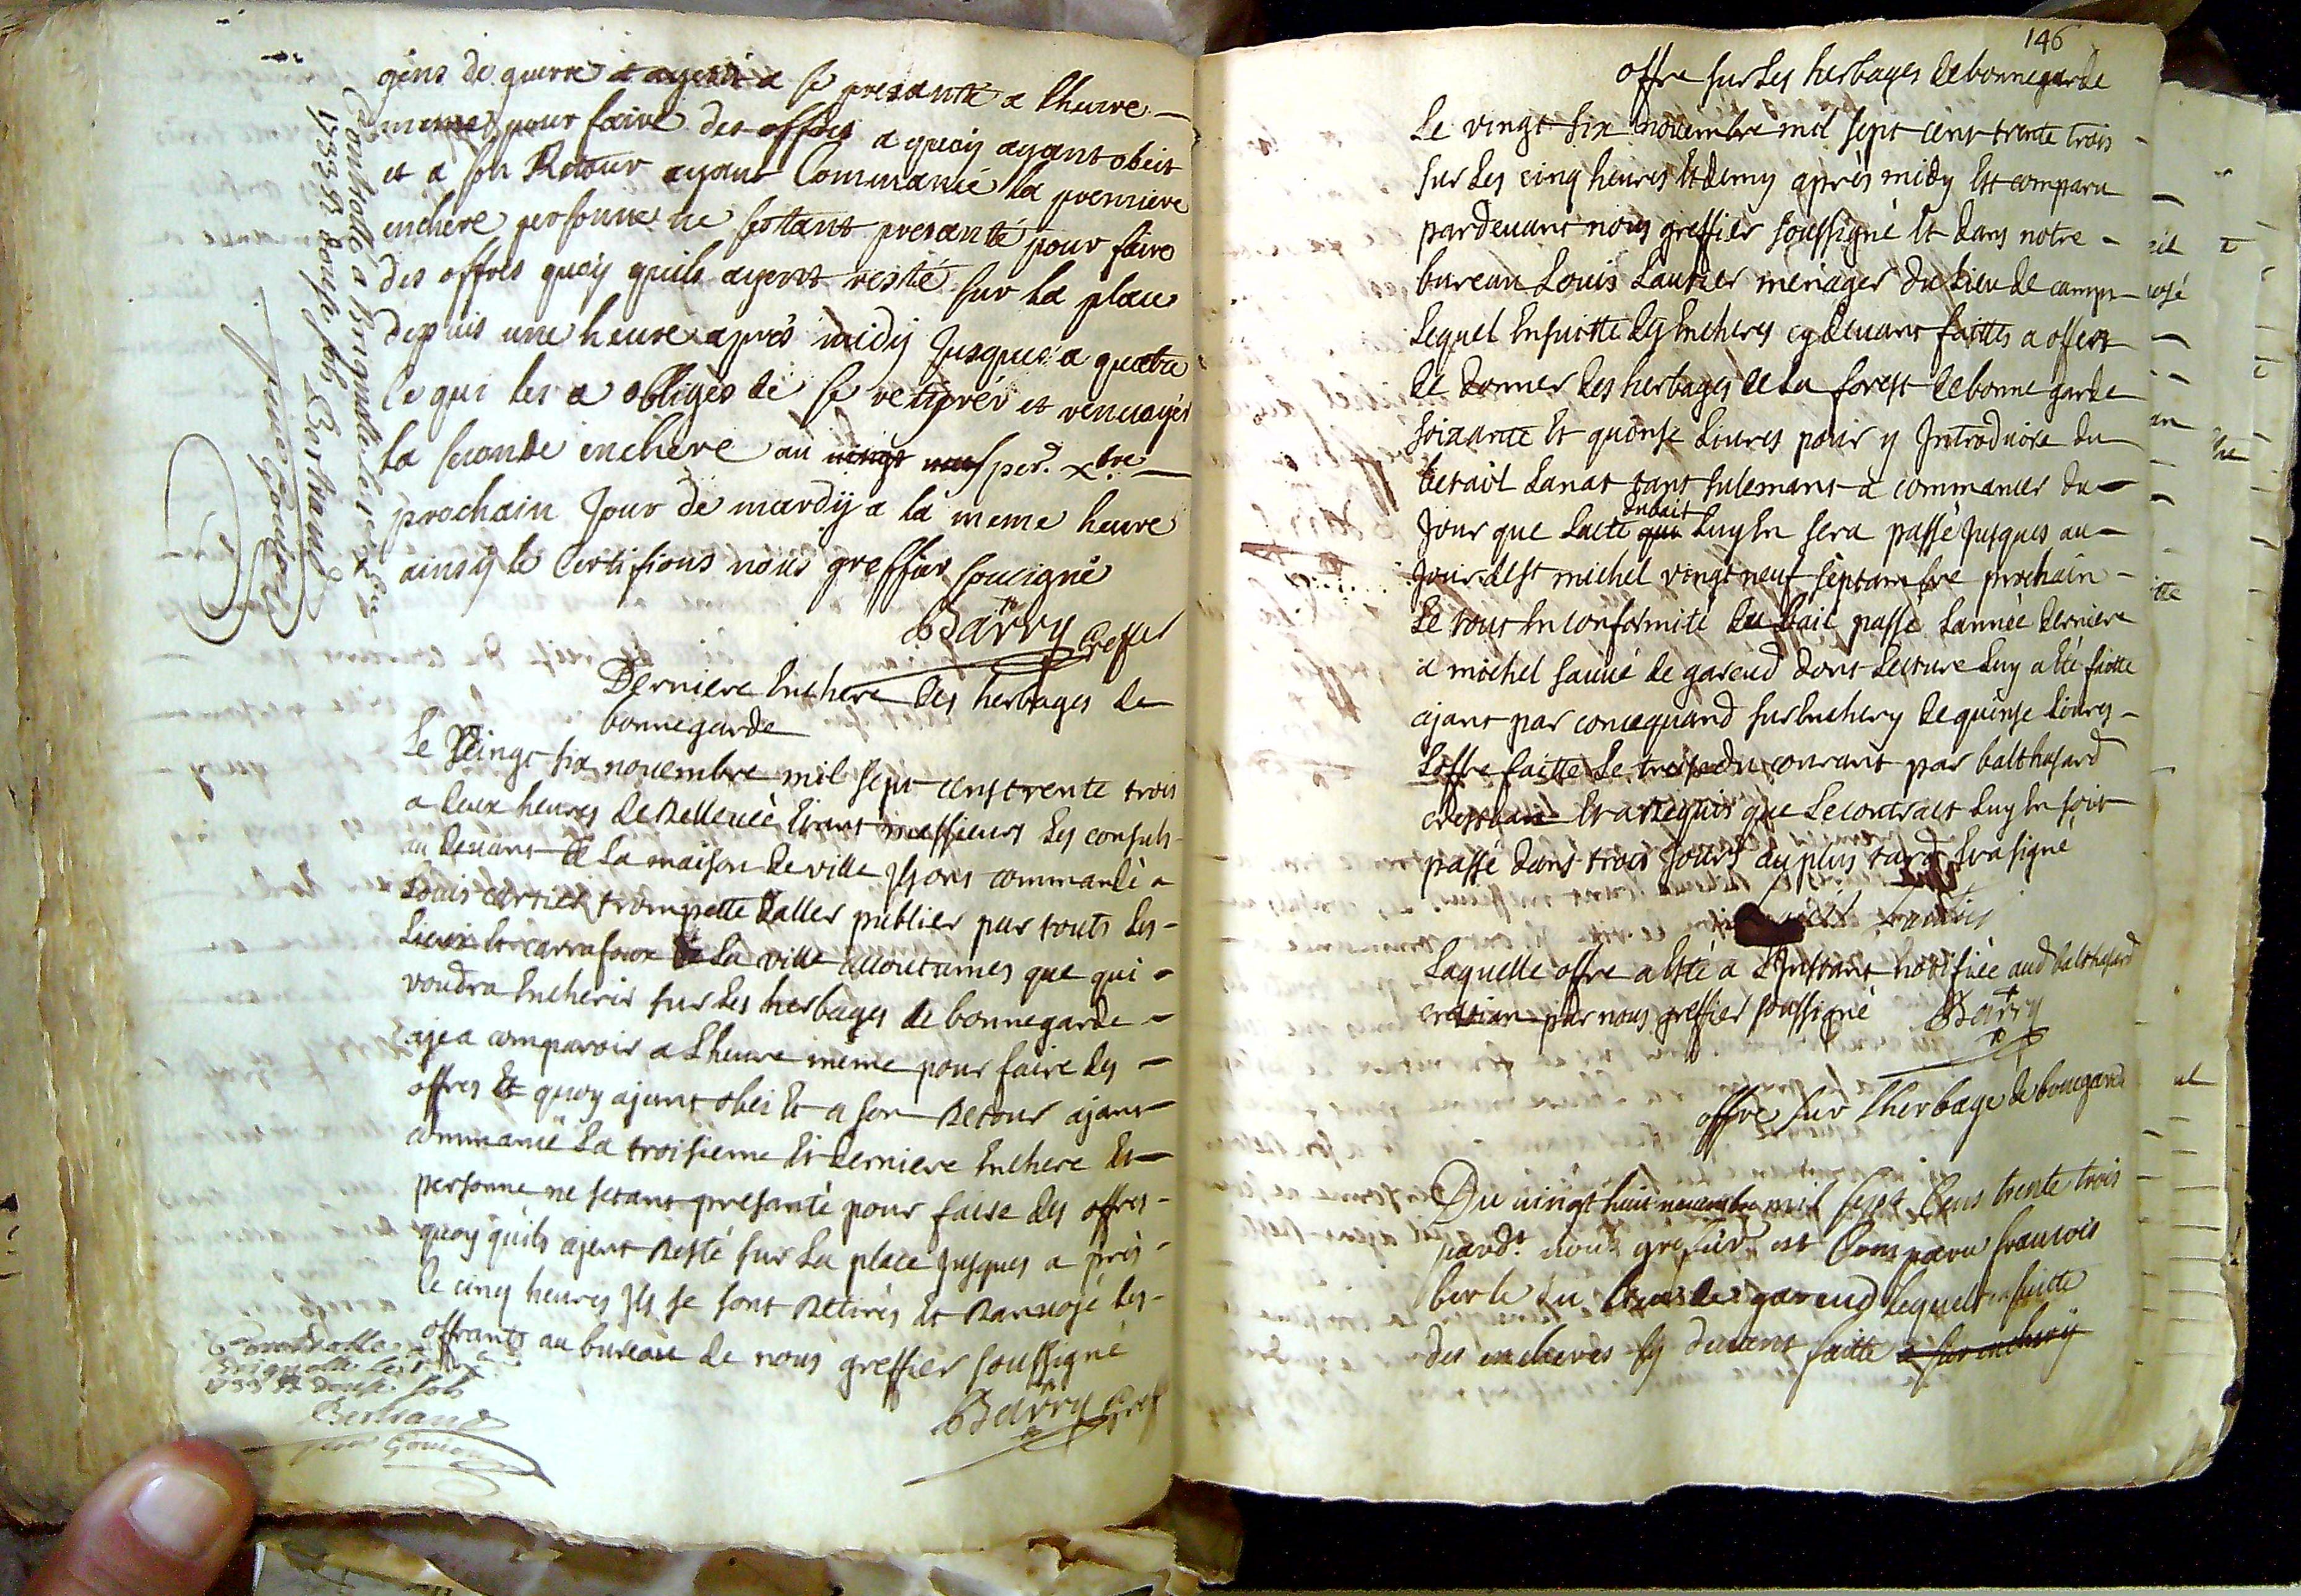 gens de guerre a se presanté a lheure
meme pour faire des offres a quoy ayant obeit
et a son Retour ayant Commancé la premiere
enchere personne ne sestant presanté pour faire
des offres quoy quils ayent resté sur la place
depuis une heure apres midy jusques a quatre
ce qui les a obligés de se retiprer et renvoyér
la seconde enchere au per. xbre
prochain jour de mardy a la meme heure
ainsy le Certifions nous greffier soucigné
Barry greffier
Controllé a Brignolle le
1733 Rt douse sols Bertrand
pour Gouson
Derniere Enchere des herbages de
bonnegarde
Le Vingt six novembre mil sept cens trente trois
a deux heures de Rellevée Etant messieurs les consuls
au devant de la maison de ville Ils ont commandé a
Louis cartier trompette daller publier par touts les
Lieux et carrafoux de la ville accoutumes que qui
voudra Encherir sur les herbages de bonnegarde
aje a comparoir a Lheure meme pour faire des
offres Et quoy ajant obei Et a son Retour ajant
commancé La troisieme Et derniere Enchere Et
personne ne setant presanté pour faire des offres
quoy quils ajent Resté sur La place jusques a près
le cinq heures Ils se sont Retirés et Ranvojé les
offrants au bureau de nous greffier soussigné
Barry gref
Controlle a
Brignolle le
1733 Rt douse sols
Bertrand
pour Gouson
146
offre sur Les herbages de bonnegarde
Le vingt six novembre mil sept cens trente trois
sur Les cinq heures Et demy après midy Est comparu
pardevant nous greffier soussigné Et dans notre
bureau Louis Lautier menager du Lieu de camps
Lequel Ensuitte des Encheres cy devant faittes a offert
de donner des herbages de La forest de bonne garde
soixante Et quinse Livres pour y Introduire du
betail Lanat tant sulemant a commancer du
dubail
jour que Lacte qui Luy En sera passé jusques au
jour de St michel vingt neuf septambre prochain
Le tout En conformité du bail passé Lannée derniere
a michel sauvé de gareud dont Lecture Luy a Eté faitte
ajant par concequand surenchery de quinse Livres
Loffre faitte Le treise du courant par balthasard
crestian Et a Requis que Le contract Luy En soit
passé dans trois jours au plus tard Et a signé
Lautier
Laquelle offre a Esté a LInstant notifiée aud balthasard
crestian par nous greffier soussigné Barry
offre sur lherbage de bonegarde
Du vingt huit novembre mil sept Cens trente trois
pard.t nous grefier est Comparu francois
berle du lieu de gareud lequel ensuitte
des encheres sy devant faitte a sur enchery